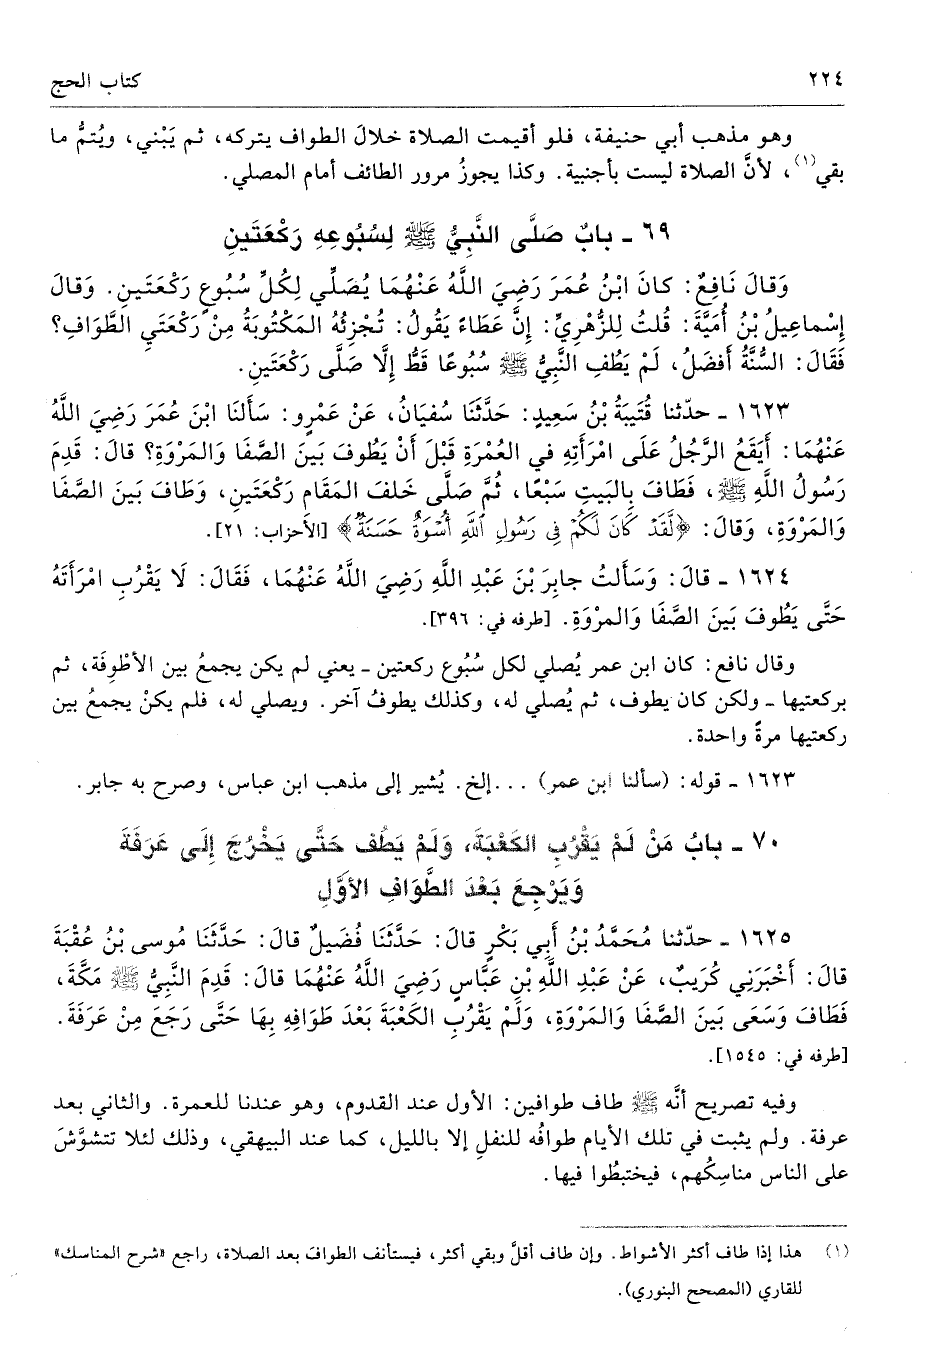 ٢٢٤ كتاب الحج
وهو مذهب أبي حنيفة، فلو أقيمت الصلاة خلالَ الطواف يتركه، ثم يَبْني، ويُتمُّ ما
بقي(١)، لأنَّ الصلاة ليست بأجنبية. وكذا يجوزُ مرور الطائف أمام المصلي.
٦٩ ـ بابٌ صَلَّى النَّبِيُّ ﷺ لِسُبُوعِهِ رَكْعَتَينِ
وَقالَ نَافِعٌ: كانَ ابْنُ عُمَرَ رَضِيَ اللَّهُ عَنْهُمَا يُصَلِّي لِكُلِّ سُبُوعٍ رَكْعَتَينِ. وَقالَ
إِسْماعِيلُ بْنُ أُمَيَّةَ: قُلتُ لِلزُّهْرِيِّ: إِنَّ عَطَاءً يَقُولُ: تُجْزِئُهُ المَكْتُوبَةُ مِنْ رَكْعَتَيِ الطَّوَافِ؟
فَقَالَ: السُّنَّةُ أَفضَلُ، لَمْ يَطُفِ النَّبِيُّ ﷺ سُبُوعًا قَطُّ إِلَّا صَلَّى رَكْعَتَينِ.
١٦٢٣ ـ حدّثنا قُتَيبَةُ بْنُ سَعِيدٍ: حَدَّثَنَا سُفيَانُ، عَنْ عَمْرٍو: سَأَلنَا ابْنَ عُمَرَ رَضِيَ اللَّهُ
عَنْهُمَا: أَيَقَعُ الرَّجُلُ عَلَى امْرَأَتِهِ في العُمْرَةِ قَبْلَ أَنْ يَطُوفَ بَينَ الصَّفَا وَالمَرْوَةِ؟ قالَ: قَدِمَ
رَسُولُ اللَّهِ ﷺ، فَطَافَ بِالبَيتِ سَبْعًا، ثُمَّ صَلَّى خَلفَ المَقَامِ رَكْعَتَينِ، وَطَافَ بَينَ الصَّفَا
وَالمَرْوَةِ، وَقالَ: ﴿لَّقَدْ كَانَ لَكُمْ فِي رَسُولِ ٱللَّهِ أُسْوَةٌ حَسَنَةٌ﴾ [الأحزاب: ٢١].
١٦٢٤ ـ قالَ: وَسَأَلتُ جابِرَ بْنَ عَبْدِ اللَّهِ رَضِيَ اللَّهُ عَنْهُمَا، فَقَالَ: لَا يَقْرُبِ امْرَأَتَهُ
حَتَّى يَطُوفَ بَينَ الصَّفَا وَالمرْوَةِ. [طرفه في: ٣٩٦].
وقال نافع: كان ابن عمر يُصلي لكل سُبُوع ركعتين ـ يعني لم يكن يجمعُ بين الأطْوِفَة، ثم
بركعتيها ـ ولكن كان يطوف، ثم يُصلي له، وكذلك يطوفُ آخر. ويصلي له، فلم يكنْ يجمعُ بين
ركعتيها مرةً واحدة.
١٦٢٣ ـ قوله: (سألنا ابن عمر) ...إلخ. يُشير إلى مذهب ابن عباس، وصرح به جابر.
٧٠ ـ بابُ مَنْ لَمْ يَقْرُبِ الكَعْبَةَ، وَلَمْ يَطُف حَتَّى يَخْرُجَ إِلَى عَرَفَةَ
وَيَرْجِعَ بَعْدَ الطَّوَافِ الأَوَّلِ
١٦٢٥ ـ حدّثنا مُحَمَّدُ بْنُ أَبِي بَكْرٍ قالَ: حَدَّثَنَا فُضَيلٌ قالَ: حَدَّثَنَا مُوسى بْنُ عُقْبَةَ
قالَ: أَخْبَرَنِي كُرَيبٌ، عَنْ عَبْدِ اللَّهِ بْنِ عَبَّاسٍ رَضِيَ اللَّهُ عَنْهُمَا قالَ: قَدِمَ النَّبِيُّ ﷺ مَكَّةَ،
فَطَافَ وَسَعَى بَينَ الصَّفَا وَالمَرْوَةِ، وَلَمْ يَقْرُبِ الكَعْبَةَ بَعْدَ طَوَافِهِ بِهَا حَتَّى رَجَعَ مِنْ عَرَفَةَ.
[طرفه في: ١٥٤٥].
وفيه تصريح أنَّه ﷺ طاف طوافين: الأول عند القدوم، وهو عندنا للعمرة. والثاني بعد
عرفة. ولم يثبت في تلك الأيام طوافُه للنفلِ إلا بالليل، كما عند البيهقي، وذلك لئلا تتشوَّشَ
على الناس مناسِكُهم، فيختبطُوا فيها.
(١) هذا إذا طاف أكثر الأشواط. وإن طاف أقلَّ وبقي أكثر، فيستأنف الطوافَ بعد الصلاة، راجع «شرح المناسك»
للقاري (المصحح البنوري).